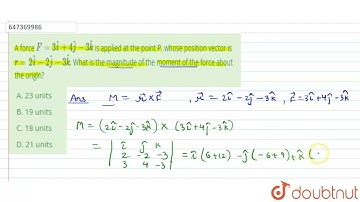 647369986
A force F = 3î + 4ĵ − 3k̂ is applied at the point P, whose position vector is
r = 2î − 2ĵ − 3k̂. What is the magnitude of the moment of the force about
the origin?
A. 23 units
B. 19 units
C. 18 units
D. 21 units
Ans M = r⃗ × F⃗ , r⃗ = 2î − 2ĵ − 3k̂ , F⃗ = 3î + 4ĵ − 3k̂
M = (2î − 2ĵ − 3k̂) × (3î + 4ĵ − 3k̂)
= | î ĵ k |
| 2 -2 -3 | = î (6+12) − ĵ (−6+9) + k̂ (
| 3 4 -3 |
doubtnut